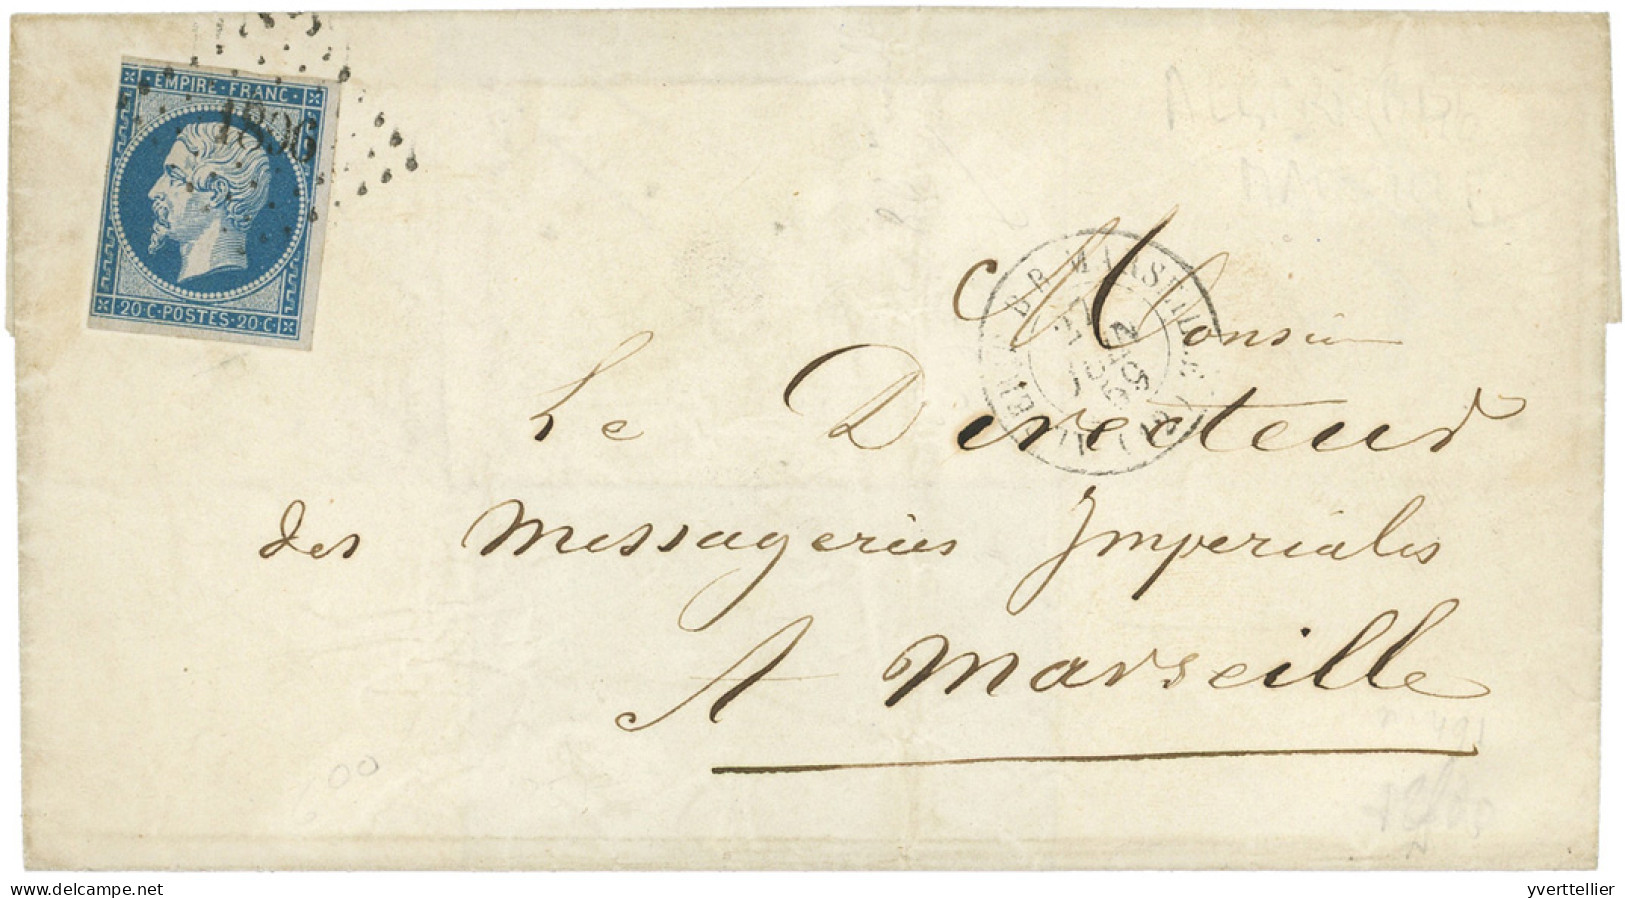 EMPIRE · FRANC ·
1896
20 · C · POSTES · 20 · C ·
MARSEILLE
27
JUIN
59
Monsieur
Le Directeur
des Messageries Imperiales
A Marseille
00
delcampe.net
yverttellier